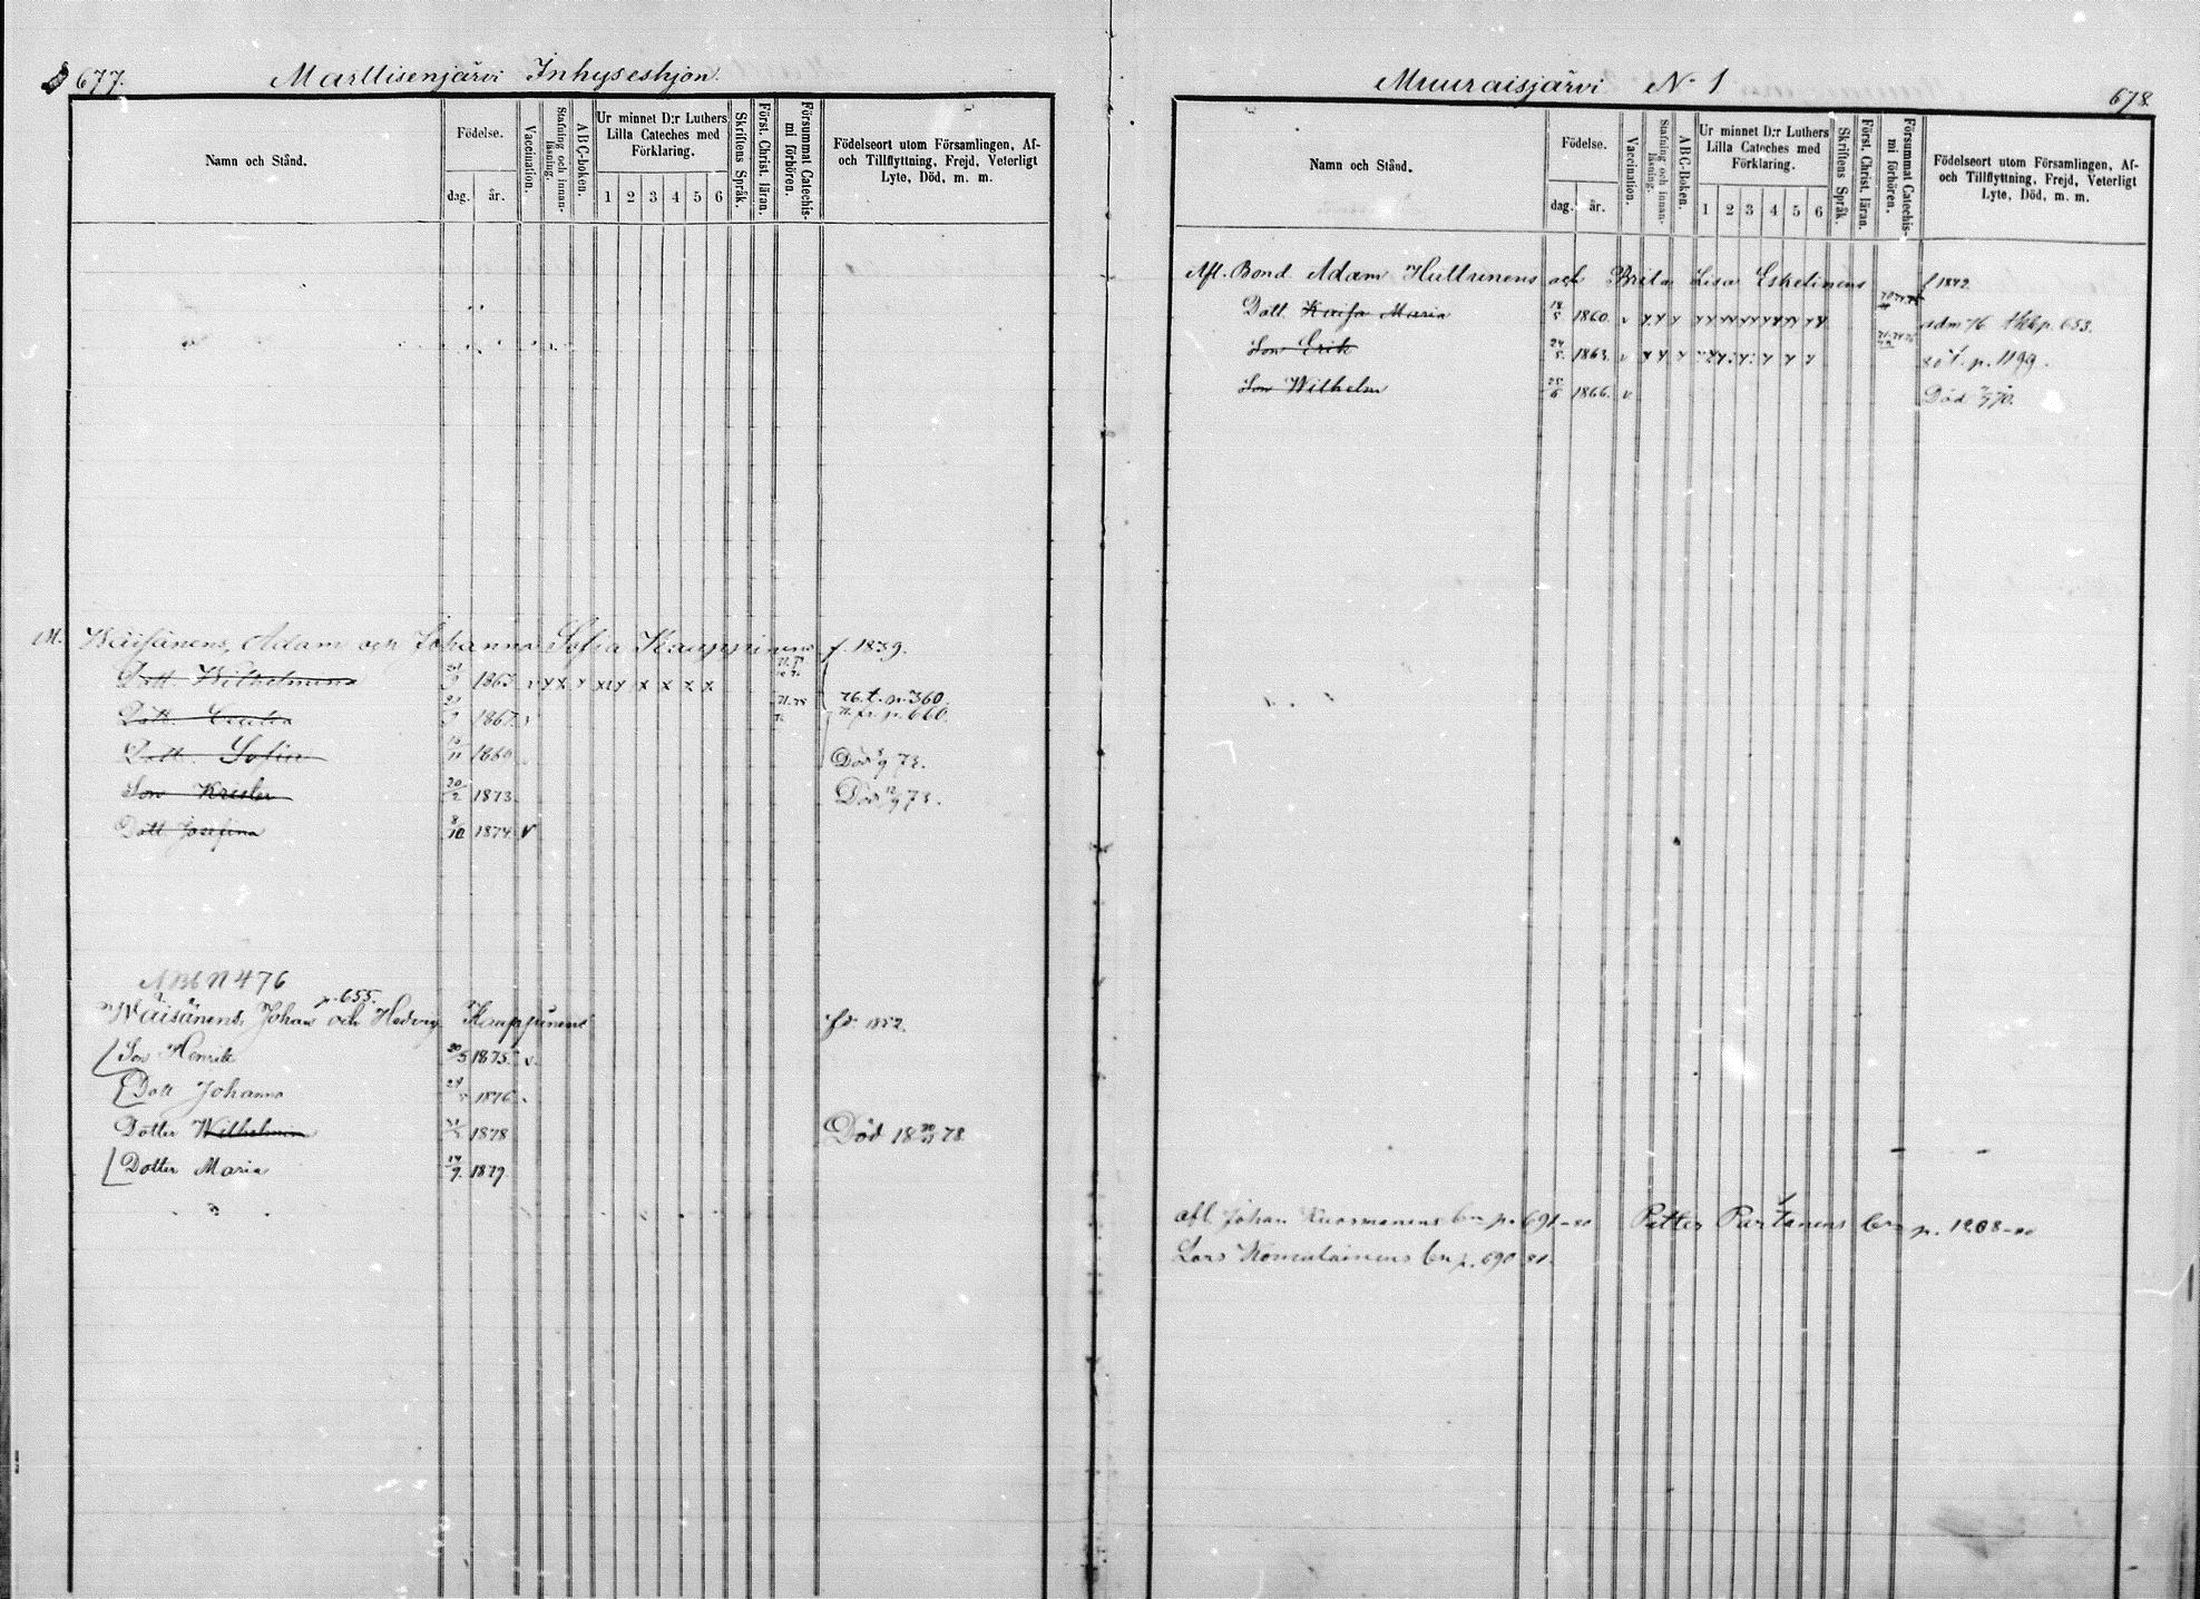 677.
Marttisenjärvi Inhyseshjon.
Namn och Stånd.
Födelse.
dag. år.
Vaccination.
Stafning och innan-läsning.
ABC-boken.
Ur minnet D:r Luthers Lilla Cateches med Förklaring.
1 2 3 4 5 6
Skriftens Språk.
Först. Christ. läran.
Försummat Catechis-mi förhören.
Födelseort utom Församlingen, Af- och Tillflyttning, Frejd, Veterligt Lyte, Död, m. m.
Wäisänens, Adam och Johanna Sofia Kauppinens f. 1839.
Dott. Wilhelmina 1865 v y x y x x y x x x x 76. t. p. 360.
Dott. Cecilia 1867. v 71. fr. p. 660.
Dott. Sofia 1869 Död 5/9 73.
Son Krister 20/2 1873 Död 12/9 73.
Dott Josefina 8/10 1874. v
N 476
p. 655.
Wäisänens, Johan och Hedvig Kauppinens fd. 1852.
Son Henrik 30/5 1875. v.
Dott Johanna 1876.
Dotter Wilhelmina 1878 Död 18 78
Dotter Maria 14/9. 1879.
Muuraisjärvi N 1
678.
Namn och Stånd.
Födelse.
dag. år.
Vaccination.
Stafning och innan-läsning.
ABC-Boken.
Ur minnet D:r Luthers Lilla Cateches med Förklaring.
1 2 3 4 5 6
Skriftens Språk.
Först. Christ. läran.
Försummat Catechis-mi förhören.
Födelseort utom Församlingen, Af- och Tillflyttning, Frejd, Veterligt Lyte, Död, m. m.
Afl. Bond. Adam Huttunens och Brita Lisa Eskelinens f 1842
Dott. Kaisa Maria 18/5 1860. v adm 76 p. 653.
Son Erik 24/5. 1863. v 80 t. p. 1199.
Son Wilhelm 25/6 1866. v Död 70.
afl. Johan Kuosmanens b p. 691-80 Petter Partanens p. 1208-80
Lars Komulainens b p. 690 81.